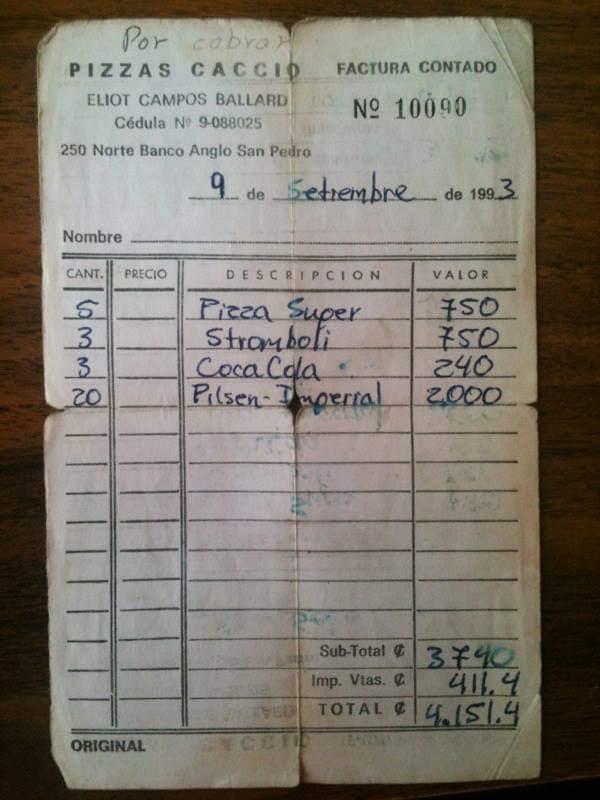 Por cobrar
PIZZAS CACCIO FACTURA CONTADO
ELIOT CAMPOS BALLARD
Nº 10090
Cédula Nº 9-088025
250 Norte Banco Anglo San Pedro
9 de Setiembre de 1993
Nombre
CANT. PRECIO DESCRIPCION VALOR
5 Pizza Super 750
3 Stromboli 750
3 Coca Cola 240
20 Pilsen-Imperial 2000
Sub-Total ₡ 3740
Imp. Vtas. ₡ 411.4
TOTAL ₡ 4.151.4
ORIGINAL